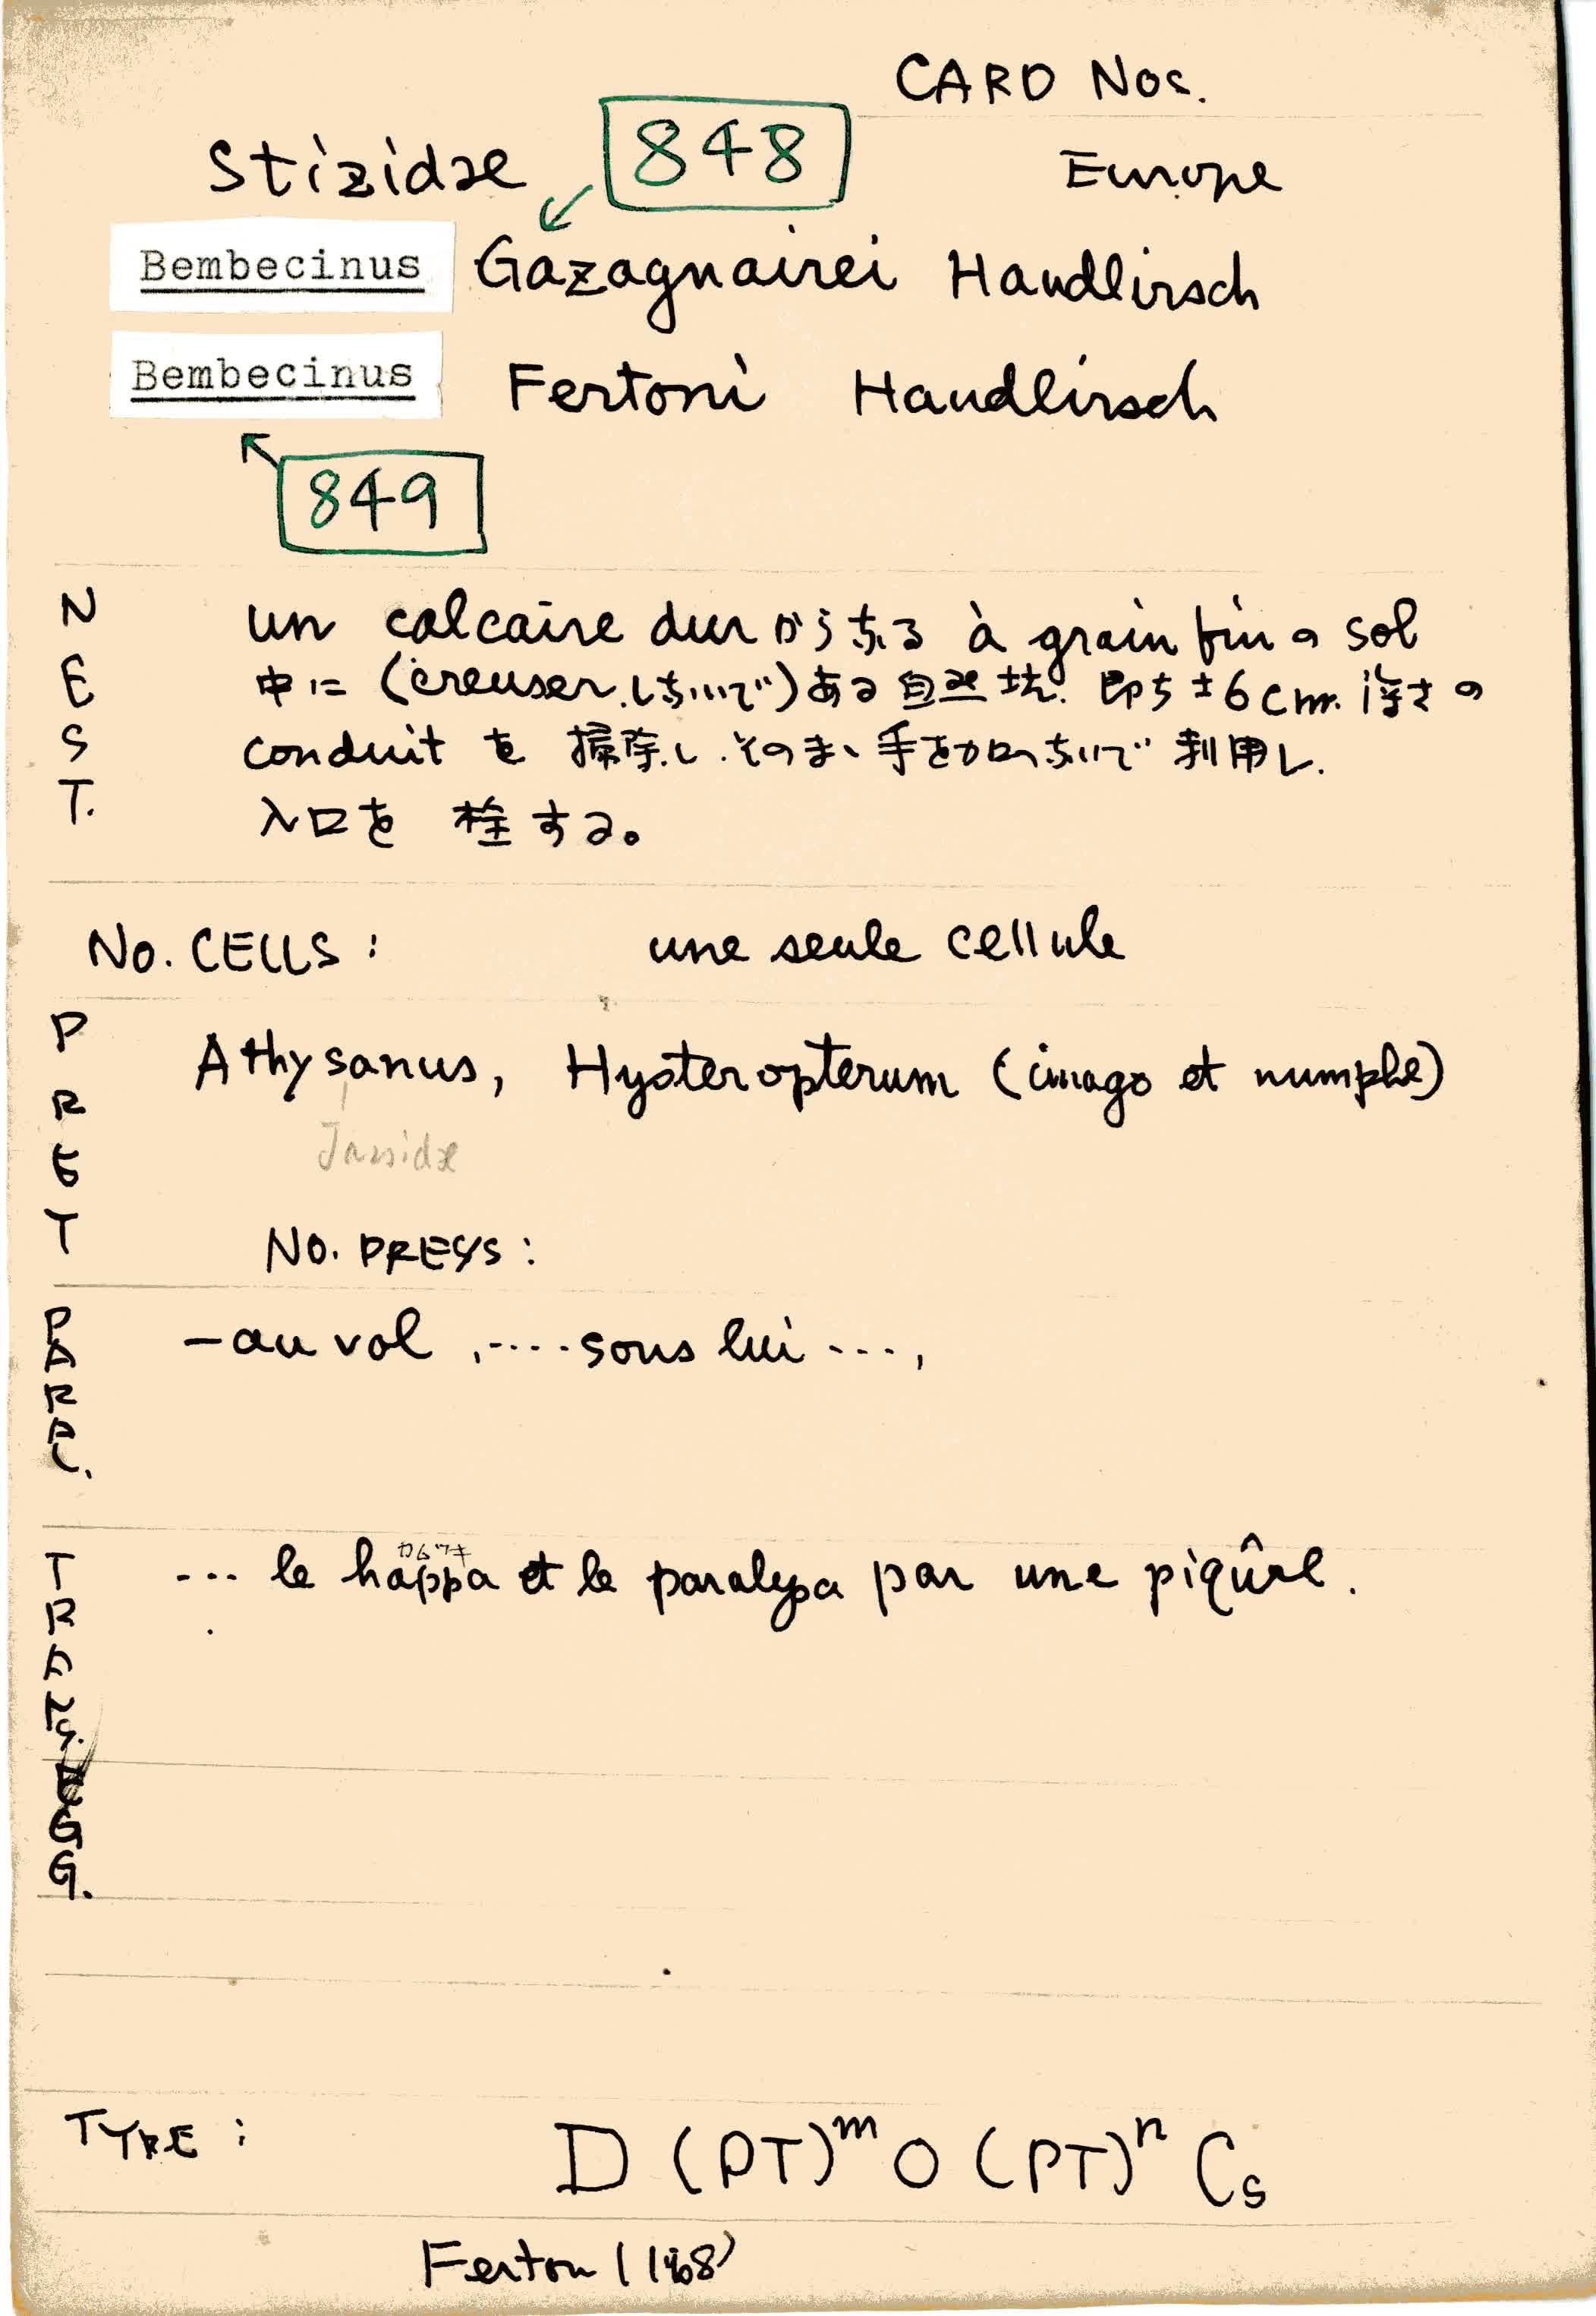 CARD Nos.
Stizidae 848 Europe
Bembecinus Gazagnairei Handlirsch
Bembecinus Fertoni Handlirsch
849
NEST. un calcaire dur からなる à grain fin の sol
中に (creuser しないで) ある自然坑. 即ち ±6cm. 深さの
conduit を 掃除し. そのまゝ手を加へないで 利用し.
入口を 栓する。
No. CELLS : une seule cellule
PREY Athysanus, Hysteropterum (imago et numphe)
Jassidae
No. PREYS :
PARAL. — au vol , .... sous lui ... ,
カムツキ
TRANS. ... le happa et le paralysa par une piqûre.
EGG.
TYPE : D (PT)ᵐ O (PT)ⁿ Cs
Ferton (1908)